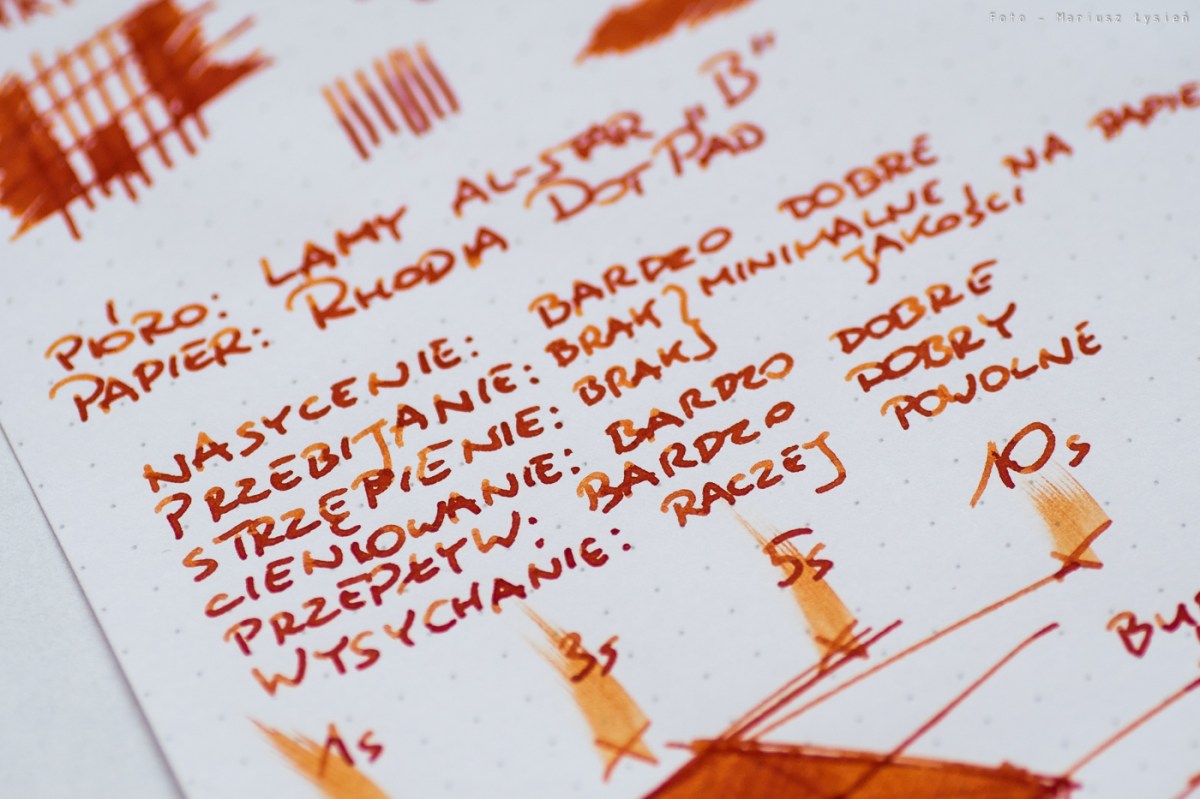 Foto - Mariusz Łysień
PIÓRO: LAMY AL-STAR "B"
PAPIER: RHODIA DOT PAD
NASYCENIE: BARDZO DOBRE
PRZEBIJANIE: BRAK } MINIMALNE NA
STRZĘPIENIE: BRAK JAKOŚCI
CIENIOWANIE: BARDZO DOBRE
PRZEPŁYW: BARDZO DOBRY
WYSYCHANIE: RACZEJ POWOLNE
1s 3s 5s 10s